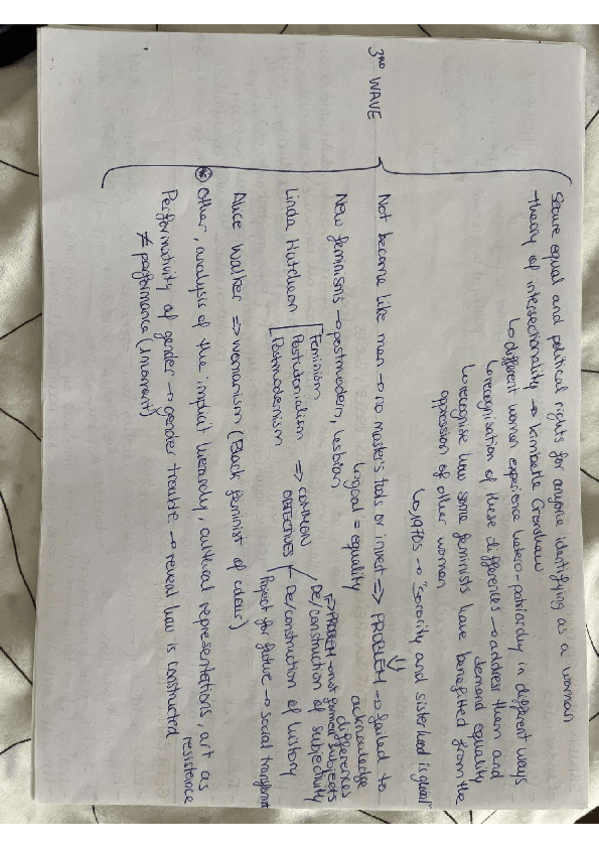 3RD WAVE
Secure equal and political rights for anyone identifying as a woman
→theory of intersectionality → Kimberle Crenshaw
↳different women experience hetero-patriarchy in different ways
↳recognisation of these differences → address them and
demand equality
↳recognise how some feminists have benefitted from the
oppression of other women
↳1970s → "sorority and sisterhood is global"
Not become like men → no master's tools or invert => PROBLEM → failed to
acknowledge
differences
↳goal = equality
New feminisms → postmodern, lesbian
Linda Hutcheon
Feminism
Postcolonialism
Postmodernism
=> COMMON
OBJECTIVES
De/construction of subjectivity
↳PROBLEM → not formed subjects
De/construction of history
Project for future → social transformat
Alice Walker => womanism (Black feminist of colour)
* Other, analysis of the implicit hierarchy, cultural representations, art as
resistence
Performativity of gender → gender trouble → reveal how is constructed
≠ performance